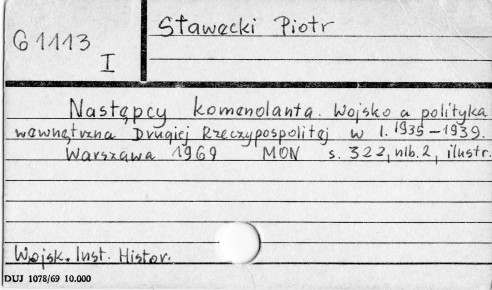 G 1113
I
Stawecki Piotr
Następcy komendanta. Wojsko a polityka
wewnętrzna Drugiej Rzeczypospolitej w l. 1935-1939.
Warszawa 1969 MON s. 322, nlb. 2, ilustr.
Wojsk. Inst. Histor.
DUJ 1078/69 10.000